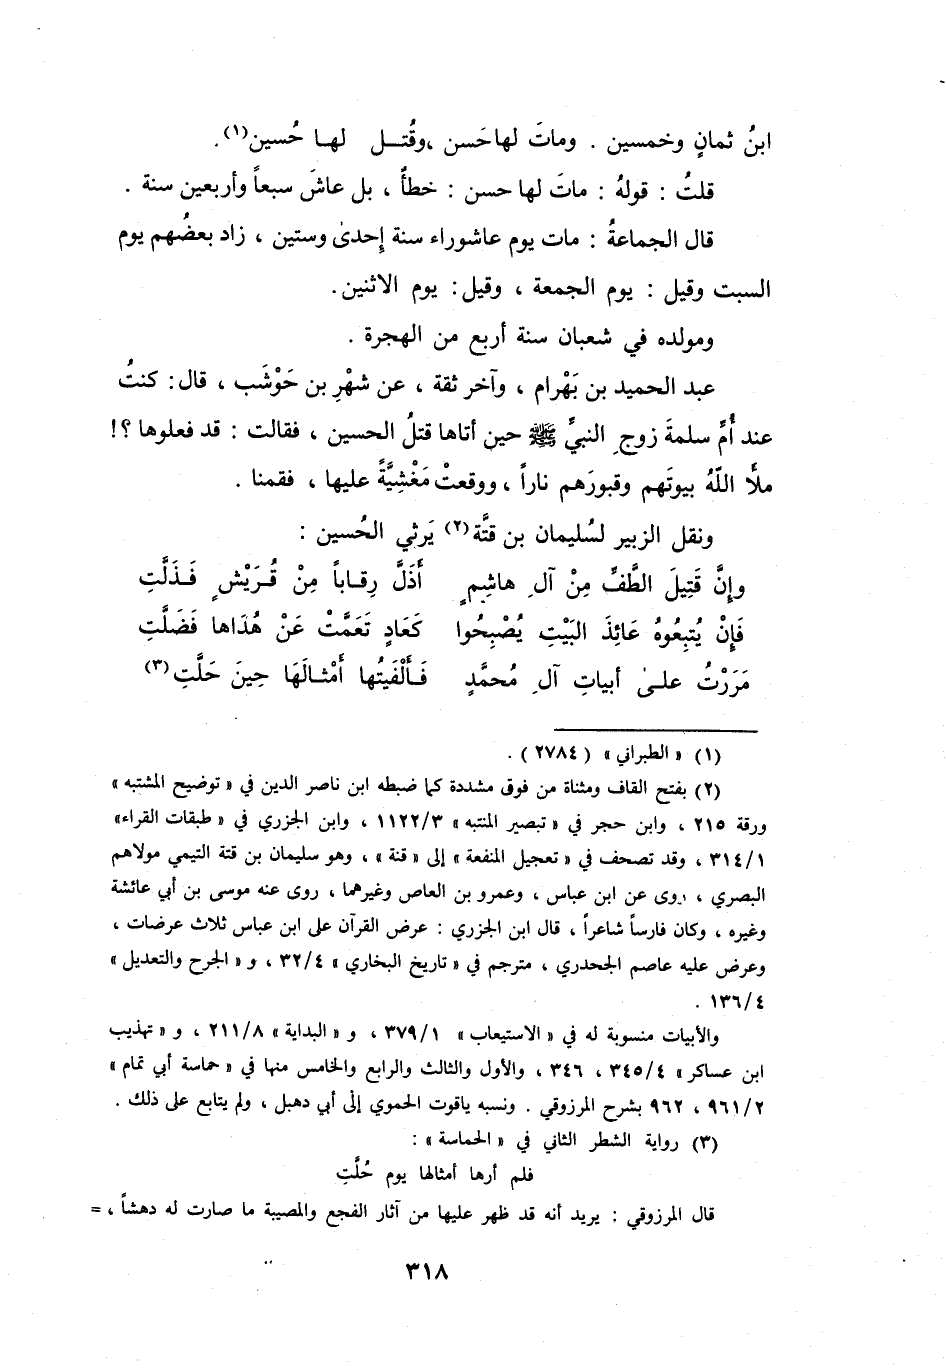 ابنُ ثمانٍ وخمسين . وماتَ لها حَسن ، وقُتــل لهـا حُسين(١) .
قلتُ : قولهُ : ماتَ لها حسن : خطأٌ ، بل عاشَ سبعاً وأربعين سنة .
قال الجماعةُ : مات يوم عاشوراء سنة إحدىٰ وستين ، زاد بعضُهم يوم
السبت وقيل : يوم الجمعة ، وقيل : يوم الاثنين .
ومولده في شعبان سنة أربع من الهجرة .
عبد الحميد بن بَهْرام ، وآخر ثقة ، عن شَهْرِ بن حَوْشَب ، قال : كنتُ
عند أُمِّ سلمةَ زوجِ النبيِّ ﷺ حين أتاها قتلُ الحسين ، فقالت : قد فعلوها ؟!
ملأَ اللّهُ بيوتَهم وقبورَهم ناراً ، ووقعتْ مَغْشِيَّةً عليها ، فقمنا .
ونقل الزبير لسُليمان بن قتَّة(٢) يَرثي الحُسين :
وإِنَّ قَتِيلَ الطَّفِّ مِنْ آلِ هاشِمٍ أَذَلَّ رِقـاباً مِنْ قُـرَيْشٍ فَـذَلَّتِ
فَإِنْ يُتبِعُوهُ عَائِذَ البَيْتِ يُصْبِحُوا كَعَادٍ تَعَمَّتْ عَنْ هُدَاها فَضَلَّتِ
مَرَرْتُ علـىٰ أبياتِ آلِ مُحمَّدٍ فَـأَلْفَيتُها أَمْثـالَهَا حِينَ حَلَّتِ(٣)
(١) « الطبراني » ( ٢٧٨٤ ) .
(٢) بفتح القاف ومثناة من فوق مشددة كما ضبطه ابن ناصر الدين في « توضيح المشتبه »
ورقة ٢١٥ ، وابن حجر في « تبصير المنتبه » ١١٢٢/٣ ، وابن الجزري في « طبقات القراء »
٣١٤/١ ، وقد تصحف في « تعجيل المنفعة » إلى « قنة » ، وهو سليمان بن قتة التيمي مولاهم
البصري ، روى عن ابن عباس ، وعمرو بن العاص وغيرهما ، روى عنه موسى بن أبي عائشة
وغيره ، وكان فارساً شاعراً ، قال ابن الجزري : عرض القرآن على ابن عباس ثلاث عرضات ،
وعرض عليه عاصم الجحدري ، مترجم في « تاريخ البخاري » ٣٢/٤ ، و « الجرح والتعديل »
١٣٦/٤ .
والأبيات منسوبة له في « الاستيعاب » ٣٧٩/١ ، و « البداية » ٢١١/٨ ، و « تهذيب
ابن عساكر » ٣٤٥/٤ ، ٣٤٦ ، والأول والثالث والرابع والخامس منها في « حماسة أبي تمام »
٩٦١/٢ ، ٩٦٢ بشرح المرزوقي . ونسبه ياقوت الحموي إلى أبي دهبل ، ولم يتابع على ذلك .
(٣) رواية الشطر الثاني في « الحماسة » :
فلم أرها أمثالها يوم حُلَّتِ
قال المرزوقي : يريد أنه قد ظهر عليها من آثار الفجع والمصيبة ما صارت له دهشاً ، =
٣١٨